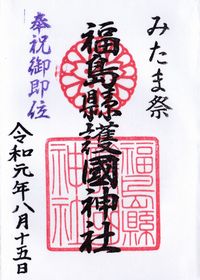 みたま祭
福島縣護國神社
奉祝御即位
令和元年八月十五日
福島縣
神社